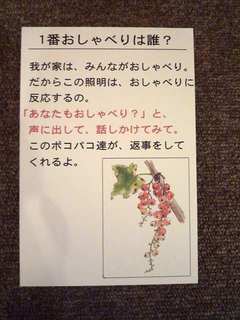 1番おしゃべりは誰？
我が家は、みんながおしゃべり。
だからこの照明は、おしゃべりに
反応するの。
「あなたもおしゃべり？」と、
声に出して、話しかけてみて。
このポコパコ達が、返事をして
くれるよ。